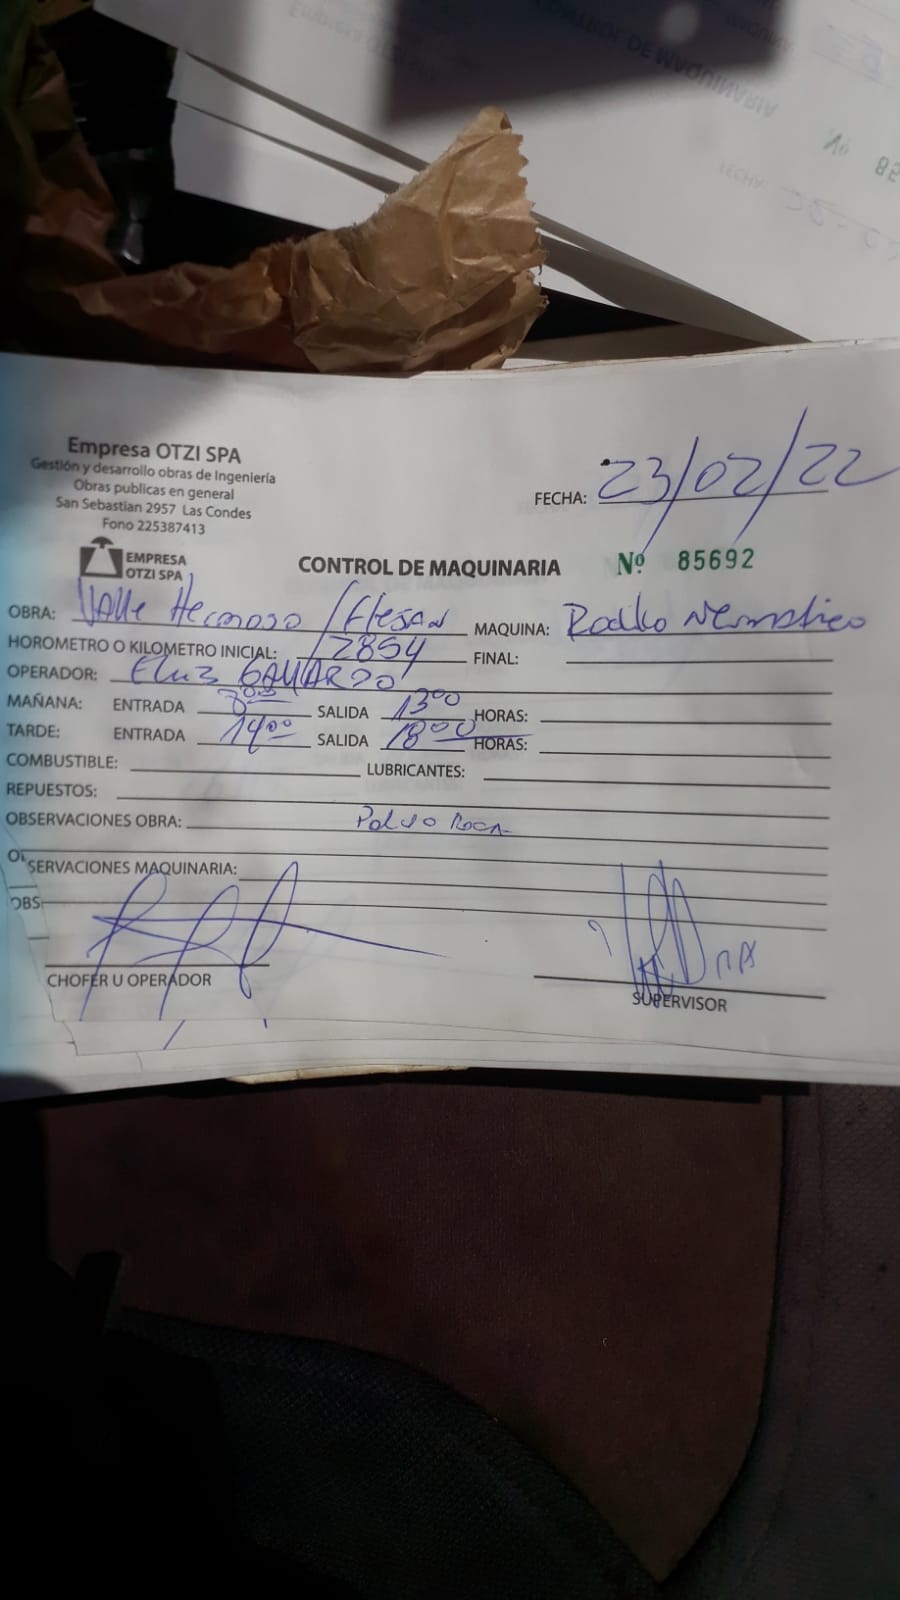 Empresa OTZI SPA
Gestión y desarrollo obras de Ingeniería
Obras publicas en general
San Sebastian 2957 Las Condes
Fono 225387413
EMPRESA
OTZI SPA
FECHA: 23/02/22
CONTROL DE MAQUINARIA Nº 85692
OBRA: Valle Hermoso / Flesan MAQUINA: Rodillo Neumatico
HOROMETRO O KILOMETRO INICIAL: 12854 FINAL:
OPERADOR: GALLARDO
MAÑANA: ENTRADA 8:00 SALIDA 13:00 HORAS:
TARDE: ENTRADA 14:00 SALIDA 18:00 HORAS:
COMBUSTIBLE: LUBRICANTES:
REPUESTOS:
OBSERVACIONES OBRA: Polvo Roca
OBSERVACIONES MAQUINARIA:
OBS
CHOFER U OPERADOR
SUPERVISOR